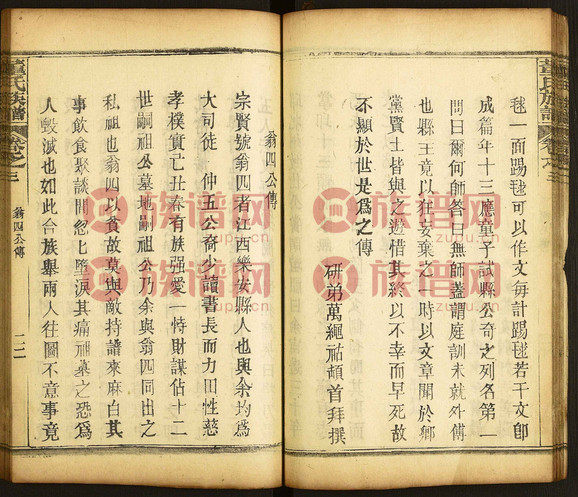 董氏族譜
卷之三
毬一面踢毬可以作文每計踢毬若干文卽
成篇年十三應童子試縣公奇之列名第一
問曰爾何師答曰無師蓋謂庭訓未就外傅
也縣王竟以狂妄棄之一時以文章聞於鄉
黨賢士皆與之遊惜其終以不幸而早死故
不顯於世是爲之傳
硏弟萬繩祜頓首拜撰
翁四公傳
宗賢號翁四者江西樂安縣人也與余均爲
大司徒 仲五公裔少讀書長而力田性慈
孝樸實亡丑春有族强愛一恃財謀佔十二
世嗣祖公墓地嗣祖公乃余與翁四同出之
私祖也翁四以貧故莫與敵持譜來麻白其
事飲食聚談間忽匕墮淚其痛祖墓之恐爲
人毀滅也如此合族舉兩人往圖不意事竟
董氏族譜
卷之三
翁四公傳
族谱网
zupu.cn
族谱网
zupu.cn
族谱网
zupu.cn
族谱网
zupu.cn